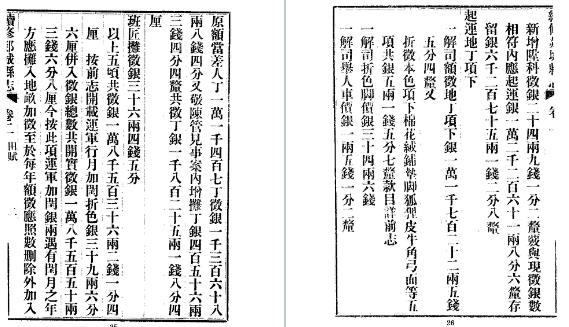 續修郯城縣志 卷二 田賦
原額當差人丁一萬一千四百七丁徵銀一千三百六十八
兩八錢四分又敬陳管見事案內增攤丁銀四百五十六兩
三錢四分四釐共徵丁銀一千八百二十五兩一錢八分四
厘
班匠攤徵銀三十六兩四錢五分
以上五項共徵銀一萬八千五百三十六兩二錢一分四
厘 按前志開載運軍行月加閏折色銀三十九兩六分
六厘併入徵銀總數共開實徵銀一萬八千五百五十兩
三錢六分八厘今按此項運軍加閏銀兩遇有閏月之年
方應攤入地畝加徵至於每年額徵應照數刪除外加入
25
新增陞科徵銀二十四兩九錢一分二釐幾與現徵銀數
相符內應起運銀一萬二千二百六十一兩八分六釐存
留銀六千二百七十五兩一錢二分八釐
起運地丁項下
一解司額徵地丁項下銀一萬一千七百二十二兩五錢
五分四釐又
折徵本色項下棉花絨鋪墊脚狐狸皮牛角弓面等五
項共銀五兩一錢五分七釐款目詳前志
一解司折色脚價銀三十四兩六錢
一解司舉人車價銀一兩五錢一分二釐
26